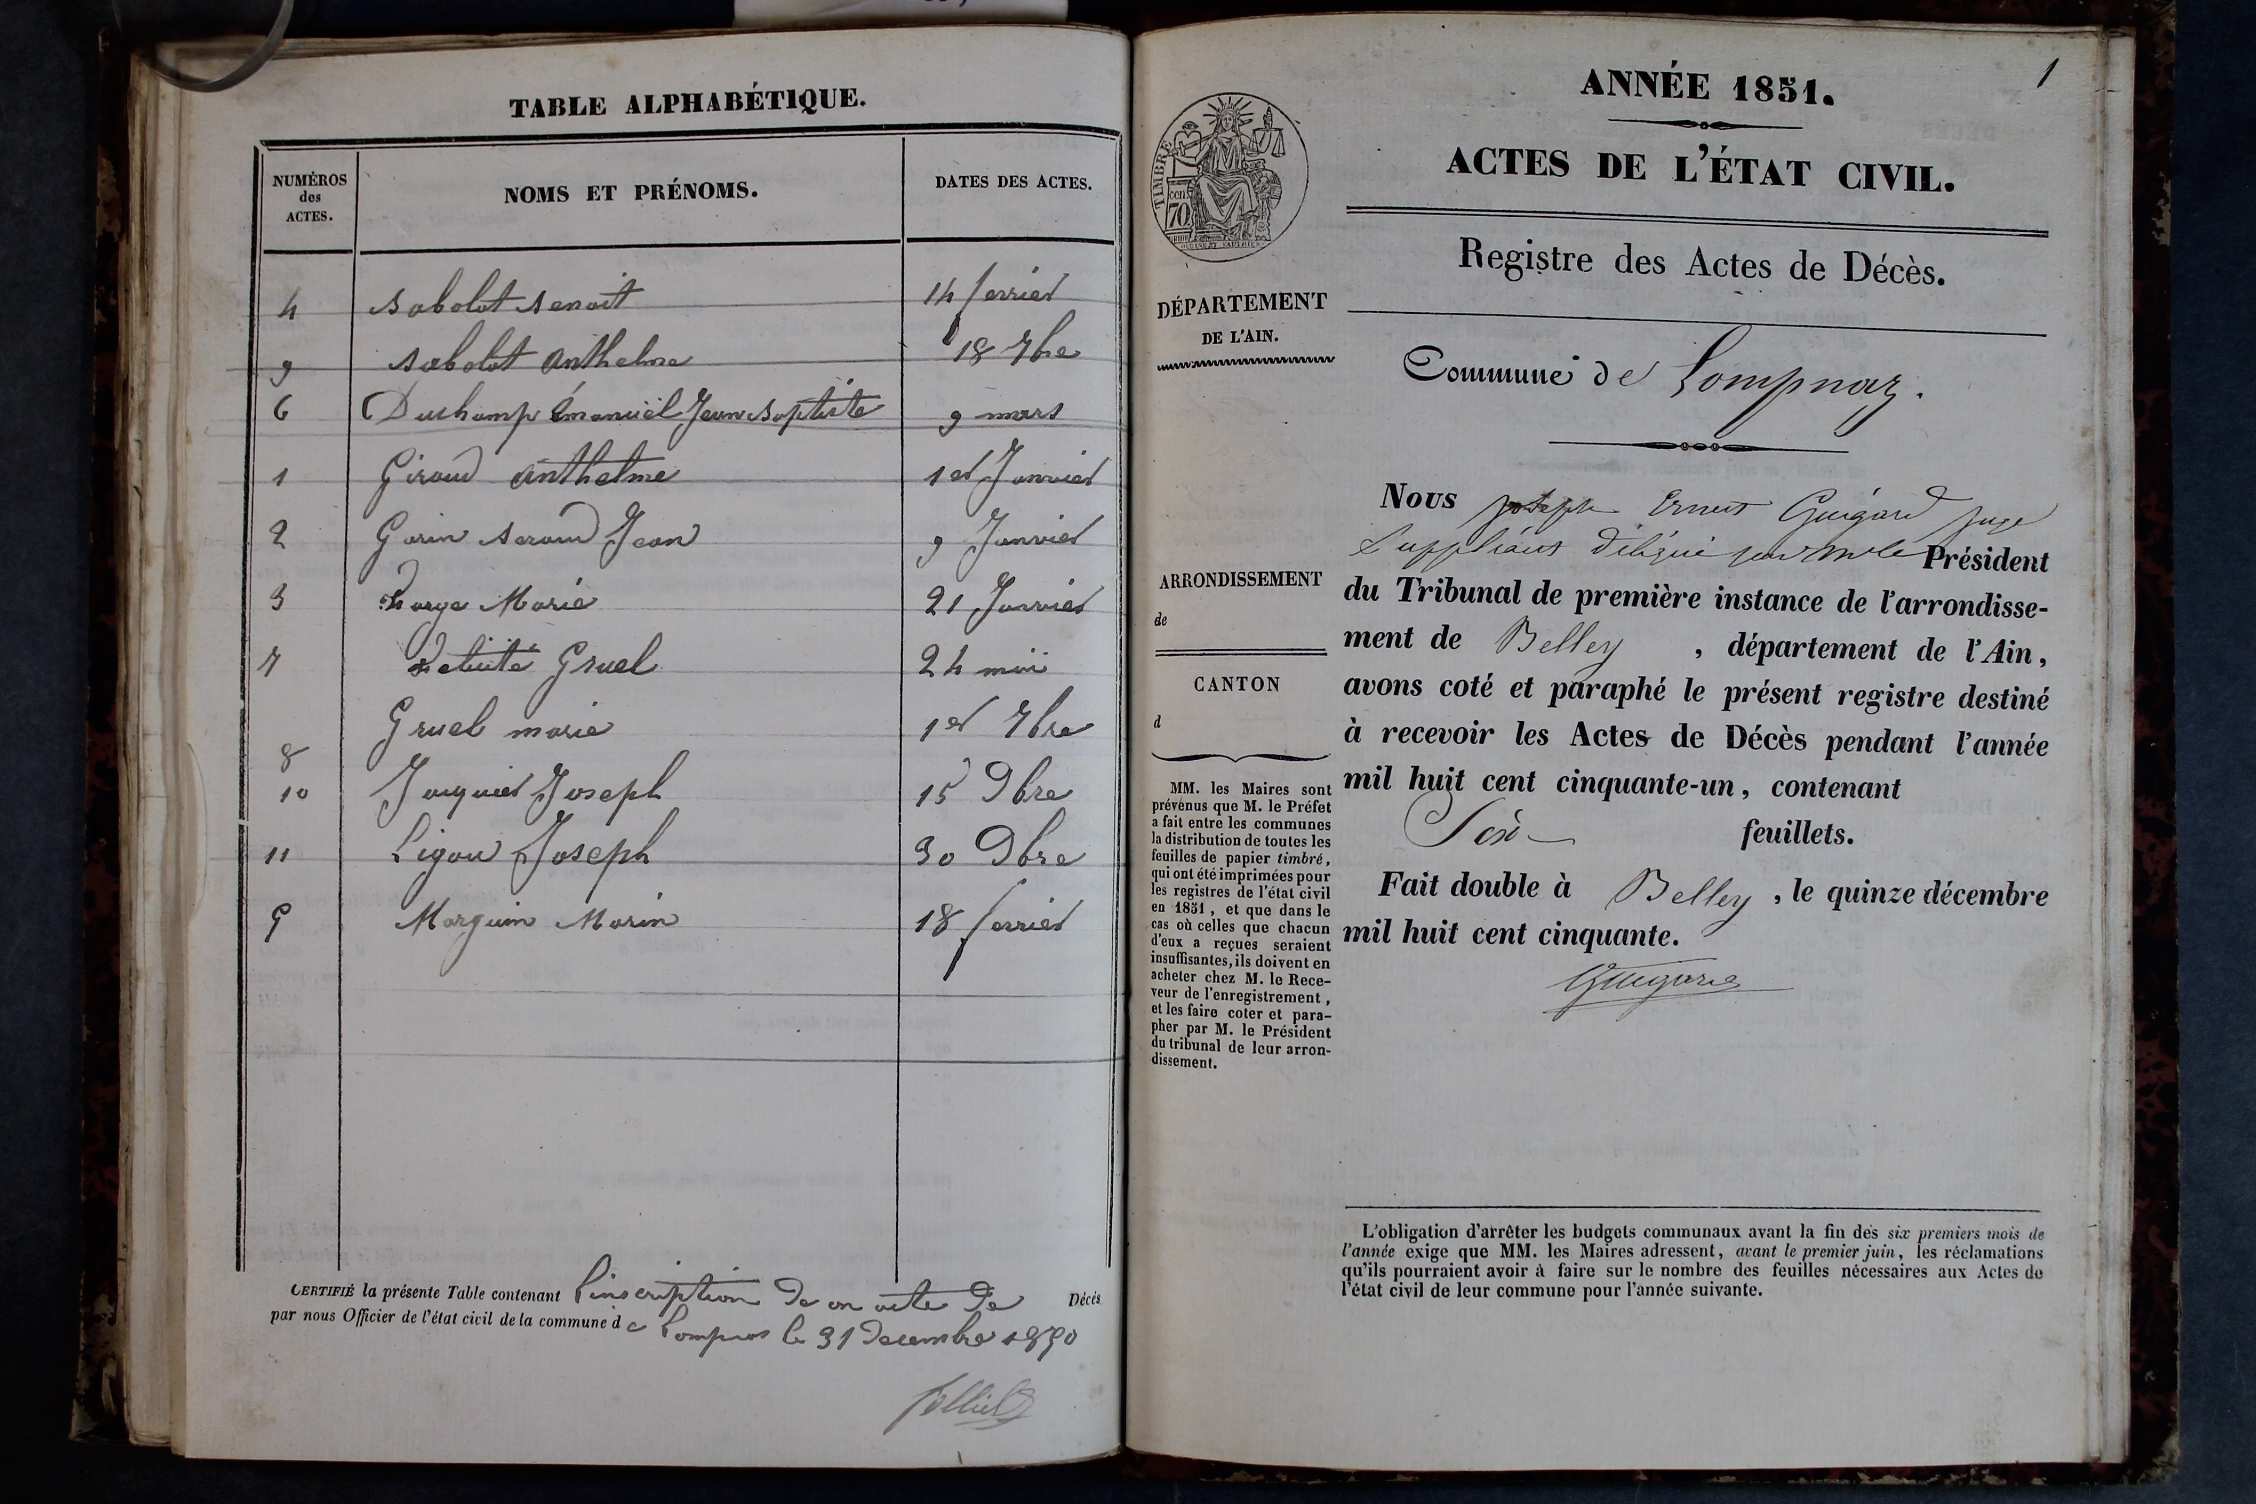 TABLE ALPHABÉTIQUE.
NUMÉROS des ACTES. NOMS ET PRÉNOMS. DATES DES ACTES.
4 Bobolot Benoit 14 fevrier
9 Bobolot Anthelme 18 7bre
6 Duchamp Émanuël Jean Baptiste 9 mars
1 Giroud Anthelme 1er Janvier
2 Gorin Jean 9 Janvier
3 Marie 21 Janvier
7 Gruel 24 mai
8 Gruel marie 1er 7bre
10 Joseph 15 9bre
11 Ligou Joseph 30 9bre
5 Marguin Marin 18 fevrier
CERTIFIÉ la présente Table contenant l'inscription de on acte de Décès
par nous Officier de l'état civil de la commune d e Lompnas le 31 Decembre 1850
1
ANNÉE 1851.
ACTES DE L'ÉTAT CIVIL.
Registre des Actes de Décès.
TIMBRE
70
DÉPARTEMENT
DE L'AIN.
Commune de Lompnaz.
ARRONDISSEMENT
de
CANTON
d
MM. les Maires sont
prévenus que M. le Préfet
a fait entre les communes
la distribution de toutes les
feuilles de papier timbré,
qui ont été imprimées pour
les registres de l'état civil
en 1851, et que dans le
cas où celles que chacun
d'eux a reçues seraient
insuffisantes, ils doivent en
acheter chez M. le Rece-
veur de l'enregistrement,
et les faire coter et para-
pher par M. le Président
du tribunal de leur arron-
dissement.
Nous Joseph Ernest Guigard juge
Suppléant délégué par Mr le Président
du Tribunal de première instance de l'arrondisse-
ment de Belley, département de l'Ain,
avons coté et paraphé le présent registre destiné
à recevoir les Actes de Décès pendant l'année
mil huit cent cinquante-un, contenant
Six feuillets.
Fait double à Belley, le quinze décembre
mil huit cent cinquante.
Guigard
L'obligation d'arrêter les budgets communaux avant la fin des six premiers mois de
l'année exige que MM. les Maires adressent, avant le premier juin, les réclamations
qu'ils pourraient avoir à faire sur le nombre des feuilles nécessaires aux Actes de
l'état civil de leur commune pour l'année suivante.